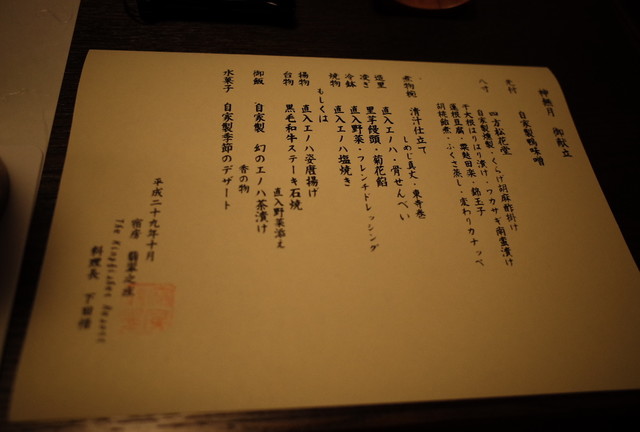 神無月　御献立
先付　自家製鴨味噌
八寸　四方松花堂
自家製燻製・くらげ胡麻酢掛け
干大根はりはり漬け・ワカサギ南蛮漬け
蓮根豆腐・粟麩田楽・錦玉子
胡桃飴煮・ふくさ蒸し・変わりカナッペ
煮物椀　清汁仕立て
しめじ真丈・東寺巻
造里　直入エノハ・骨せんべい
凌ぎ　里芋饅頭・菊花餡
冷鉢　直入野菜・フレンチドレッシング
焼物　直入エノハ塩焼き
もしくは
揚物　直入エノハ姿唐揚げ
台物　黒毛和牛ステーキ石焼
直入野菜添え
御飯　自家製　幻のエノハ茶漬け
香の物
水菓子　自家製季節のデザート
平成二十九年十月
宿房　翡翠之庄
The Kingfisher
料理長　下田